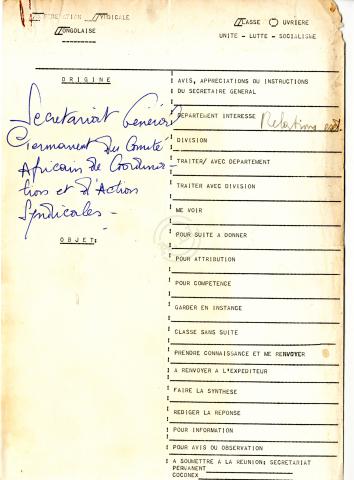 SYNDICALE
CONGOLAISE
CLASSE OUVRIERE
UNITE - LUTTE - SOCIALISME
ORIGINE
Secretariat Général
Permanent du Comité
Africain de Coordina-
tion et d'Action
Syndicales -
OBJET:
AVIS, APPRECIATIONS OU INSTRUCTIONS
DU SECRETAIRE GENERAL
DEPARTEMENT INTERESSE Relations
DIVISION
TRAITER/ AVEC DEPARTEMENT
TRAITER AVEC DIVISION
ME VOIR
POUR SUITE A DONNER
POUR ATTRIBUTION
POUR COMPETENCE
GARDER EN INSTANCE
CLASSE SANS SUITE
PRENDRE CONNAISSANCE ET ME RENVOYER
A RENVOYER A L'EXPEDITEUR
FAIRE LA SYNTHESE
REDIGER LA REPONSE
POUR INFORMATION
POUR AVIS OU OBSERVATION
A SOUMETTRE A LA REUNION: SECRETARIAT
PERMANENT
COCONEX